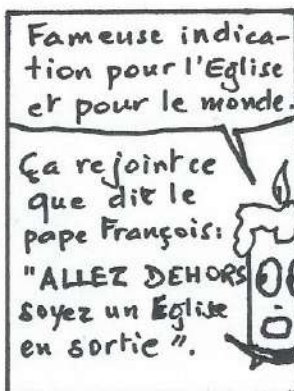 Fameuse indica-
tion pour l'Eglise
et pour le monde.
Ça rejoint ce
que dit le
pape François:
"ALLEZ DEHORS
soyez un Eglise
en sortie".